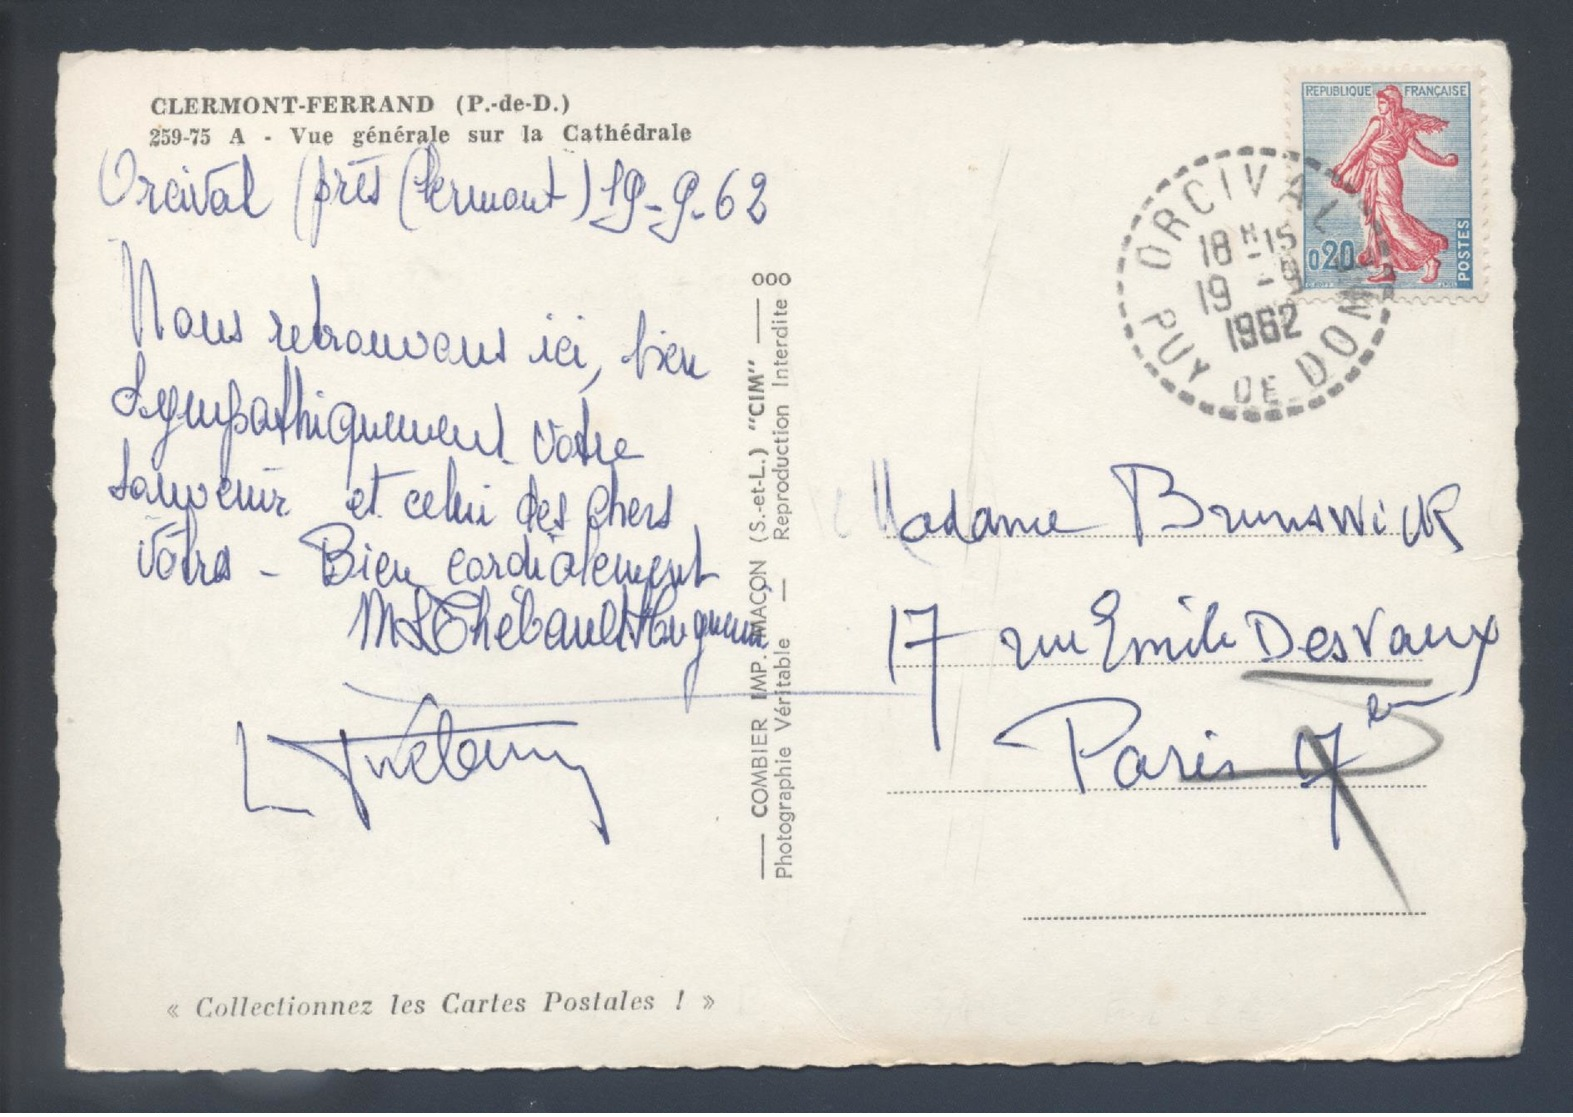 CLERMONT-FERRAND (P.-de-D.)
259-75 A - Vue générale sur la Cathédrale
Orcival (près Clermont) 19-9-62
Nous retrouvons ici, bien
sympathiquement votre
souvenir et celui des chers
vôtres - Bien cordialement
ML Thébault
COMBIER IMP. MAÇON (S.-et-L.) "CIM"
Photographie Véritable — Reproduction Interdite
« Collectionnez les Cartes Postales ! »
REPUBLIQUE FRANÇAISE
0,20
POSTES
ORCIVAL
18 H 15
19 - 9
1962
PUY DE DOME
Madame Brunswick
17 rue Emile Desvaux
Paris